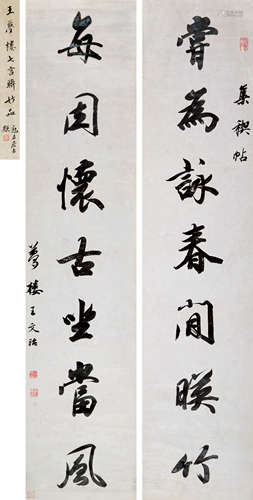 嘗為詠春閒暎竹
集禊帖
每因懷古坐當風
夢樓王文治
王夢樓七言聯妙品